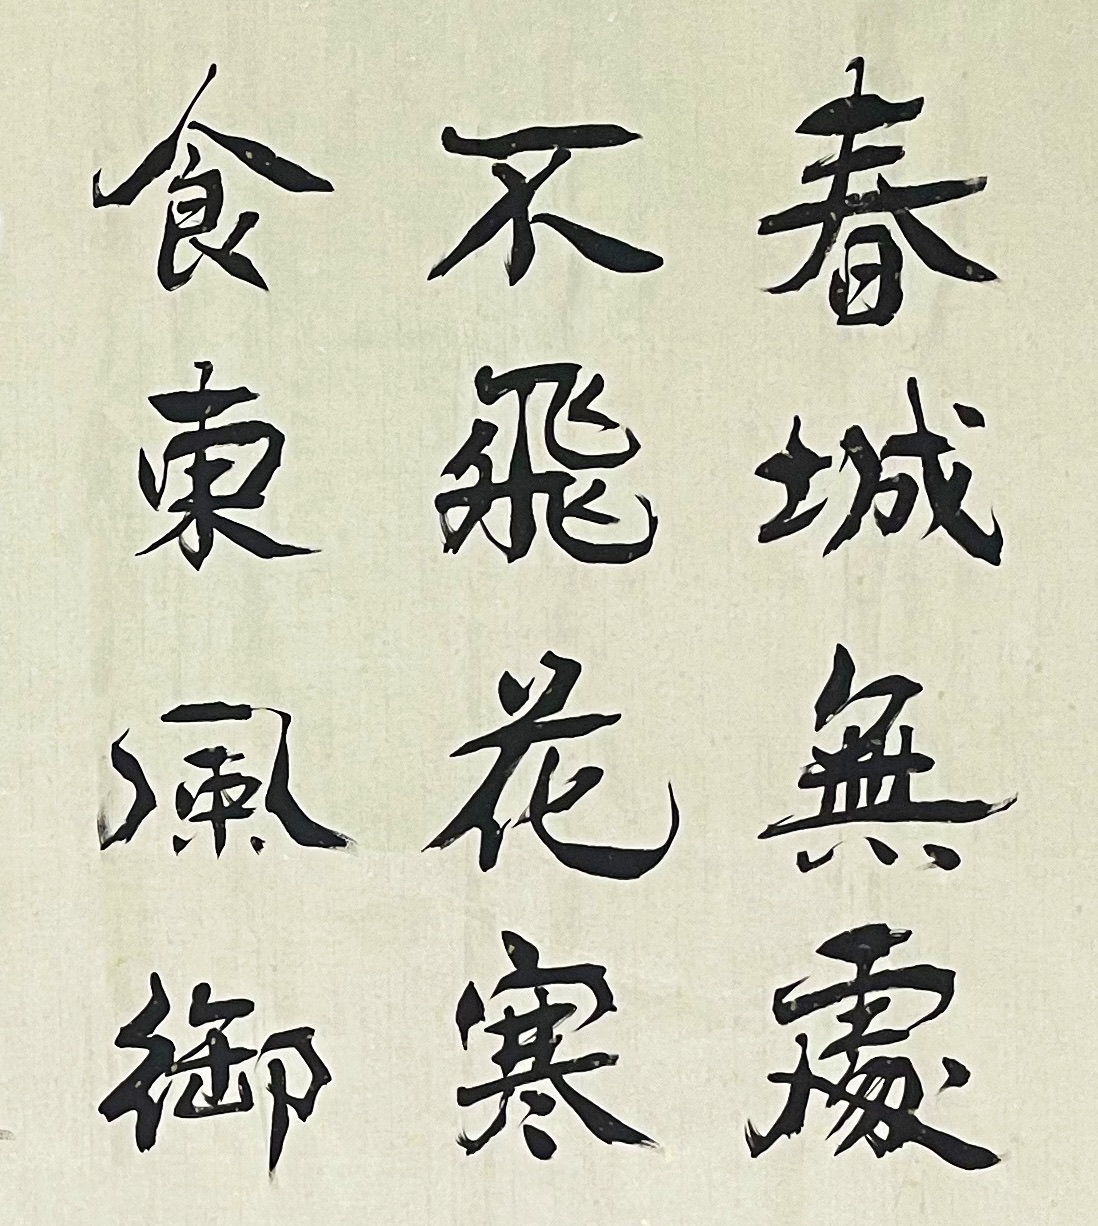 春城無處
不飛花寒
食東風御